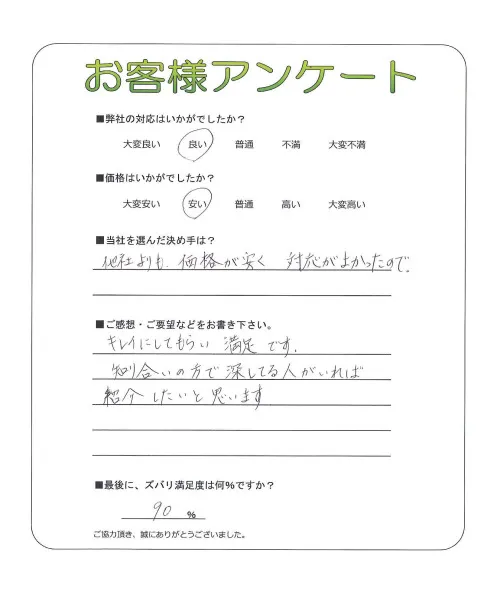 お客様アンケート
■弊社の対応はいかがでしたか?
大変良い 良い 普通 不満 大変不満
■価格はいかがでしたか?
大変安い 安い 普通 高い 大変高い
■当社を選んだ決め手は?
他社よりも、価格が安く 対応がよかったので。
■ご感想・ご要望などをお書き下さい。
キレイにしてもらい 満足です。
知り合いの方で 深してる人がいれば
紹介したいと思います
■最後に、ズバリ満足度は何%ですか?
90 %
ご協力頂き、誠にありがとうございました。